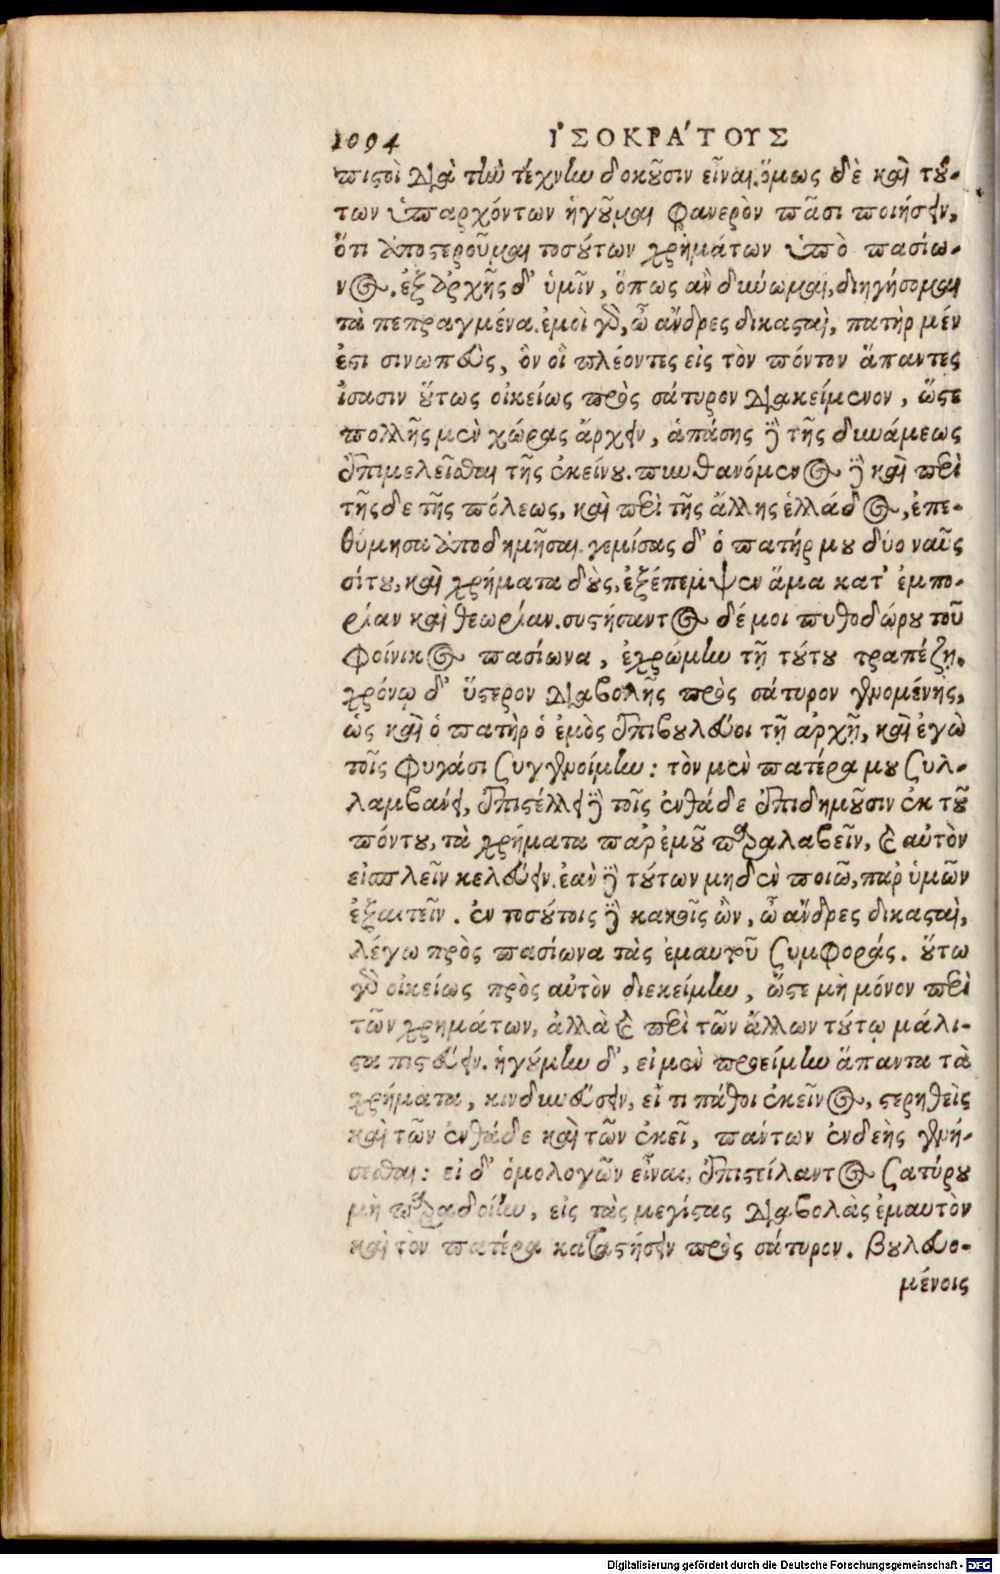 1094 ἸΣΟΚΡΑ΄ΤΟΥΣ
πιστοὶ διὰ τὴν τέχνην δοκοῦσιν εἶναι. ὅμως δὲ καὶ τού-
των ὑπαρχόντων ἡγοῦμαι φανερὸν πᾶσι ποιήσειν,
ὅτι ἀποστεροῦμαι τοσούτων χρημάτων ὑπὸ πασίω-
νος. ἐξ ἀρχῆς δ' ὑμῖν, ὅπως ἂν δυνύωμαι, διηγήσομαι
τὰ πεπραγμένα. ἐμοὶ γὰρ, ὦ ἄνδρες δικασταὶ, πατὴρ μέν
ἐστι σινωπεὺς, ὃν οἱ πλέοντες εἰς τὸν πόντον ἅπαντες
ἴσασιν οὕτως οἰκείως πρὸς σάτυρον διακείμενον, ὥστε
πολλῆς μὲν χώρας ἄρχειν, ἁπάσης δὲ τῆς δυνάμεως
ἐπιμελεῖσθαι τῆς ἐκείνου. πυνθανόμενος δὲ καὶ περὶ
τῆς δε τῆς πόλεως, καὶ περὶ τῆς ἄλλης ἑλλάδος, ἐπε-
θύμησα ἀποδημῆσαι. γεμίσας δ' ὁ πατήρ μου δύο ναῦς
σίτου, καὶ χρήματα δοὺς, ἐξέπεμψεν ἅμα κατ' ἐμπο-
ρίαν καὶ θεωρίαν. συστήσαντος δέ μοι πυθοδώρου τοῦ
φοίνικος πασίωνα, ἐχρώμην τῇ τούτου τραπέζῃ.
χρόνῳ δ' ὕστερον διαβολῆς πρὸς σάτυρον γενομένης,
ὡς καὶ ὁ πατὴρ ὁ ἐμὸς ἐπιβουλεύοι τῇ ἀρχῇ, καὶ ἐγὼ
τοῖς φυγάσι συγγενοίμην: τὸν μὲν πατέρα μου συλ-
λαμβάνει, ἐπιστέλλει δὲ τοῖς ἐνθάδε ἐπιδημοῦσιν ἐκ τοῦ
πόντου, τὰ χρήματα παρ' ἐμοῦ παραλαβεῖν, καὶ αὐτὸν
εἰσπλεῖν κελεύειν. ἐὰν δὲ τούτων μηδὲν ποιῶ, παρ' ὑμῶν
ἐξαιτεῖν. ἐν τοσούτοις δὲ κακοῖς ὢν, ὦ ἄνδρες δικασταὶ,
λέγω πρὸς πασίωνα τὰς ἐμαυτοῦ συμφοράς. οὕτω
γὰρ οἰκείως πρὸς αὐτὸν διεκείμην, ὥστε μὴ μόνον περὶ
τῶν χρημάτων, ἀλλὰ καὶ περὶ τῶν ἄλλων τούτῳ μάλι-
στα πιστεύειν. ἡγούμην δ', εἰ μὲν προείμην ἅπαντα τὰ
χρήματα, κινδυνεύσειν, εἴ τι πάθοι ἐκεῖνος, στερηθεὶς
καὶ τῶν ἐνθάδε καὶ τῶν ἐκεῖ, πάντων ἐνδεὴς γενή-
σεσθαι: εἰ δ' ὁμολογῶν εἶναι, ἐπιστείλαντος σατύρου
μὴ παραδοίην, εἰς τὰς μεγίστας διαβολὰς ἐμαυτὸν
καὶ τὸν πατέρα καταστήσειν πρὸς σάτυρον. βουλευο-
μένοις
Digitalisierung gefördert durch die Deutsche Forschungsgemeinschaft - DFG